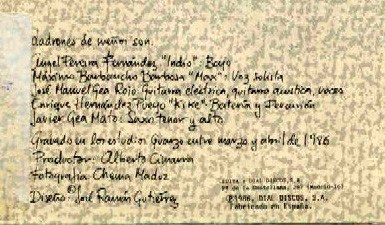 Ladrones de menor son.
Angel Pereira Fernández "Indio": Bajo
Máximo Barbancho Barbosa "Max": Voz solista
José Manuel Gea Rojo: Guitarra eléctrica, guitarra acústica, voces
Enrique Hernández Pueyo "Kike": Batería y Percusión
Javier Gea Mato: Saxo tenor y alto.
Grabado en los estudios entre marzo y abril de 1986
Productor: Alberto
Fotografía: Chema Madoz
Diseño: José Ramón Gutiérrez
DIAL DISCOS, S.A.
Pº de la Castellana, 287 (Madrid-16)
℗1986, DIAL DISCOS, S.A.
Fabricado en España.